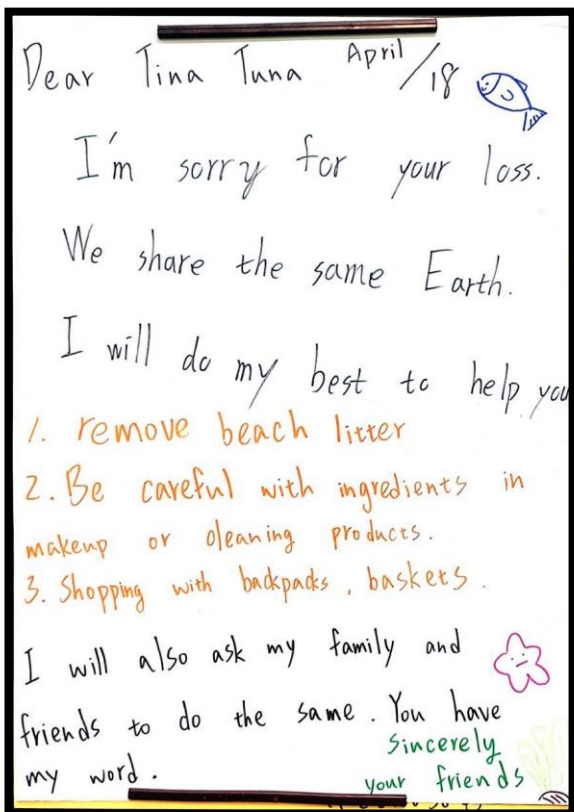 Dear Tina Tuna April/18
I'm sorry for your loss.
We share the same Earth.
I will do my best to help you
1. remove beach litter
2. Be careful with ingredients in
makeup or cleaning products.
3. Shopping with backpacks, baskets.
I will also ask my family and
friends to do the same. You have
my word.
Sincerely
your friends